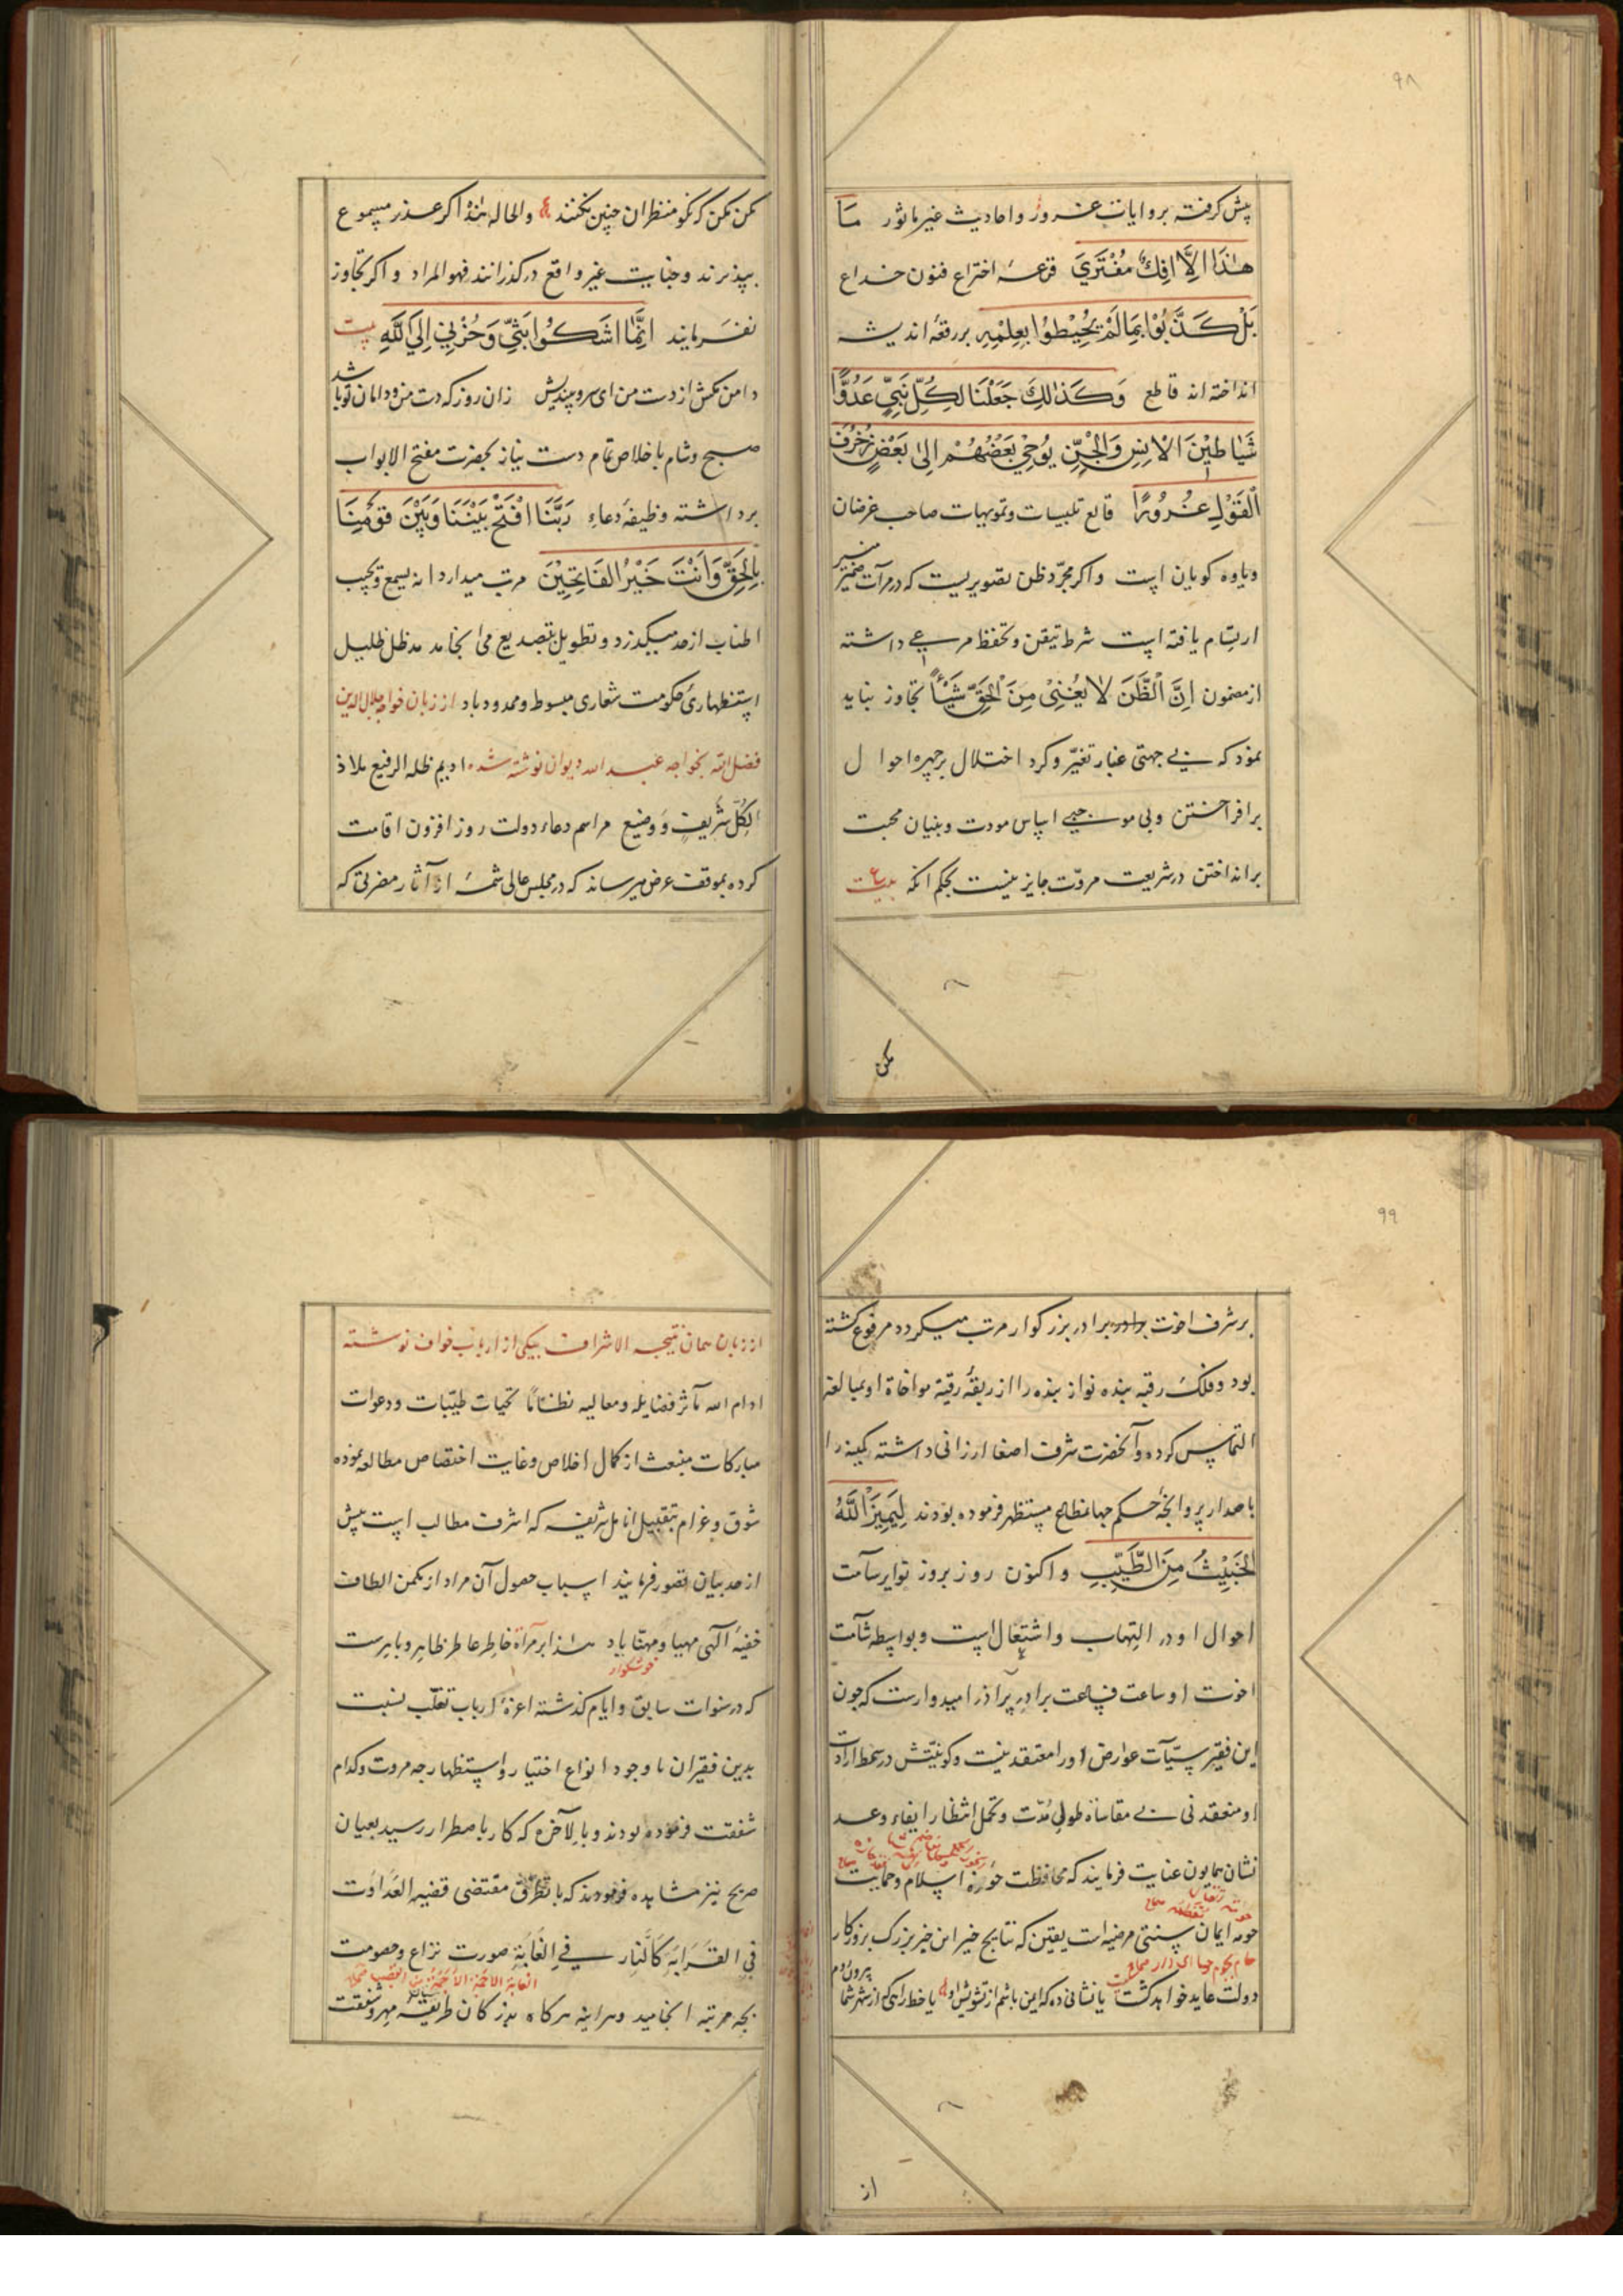 ۹۸
پیش گرفته بروایات غرور و احادیث غیر ماثور مَا
هٰذَا اِلَّا اِفْكٌ مُفْتَرَىً قرعهٔ اختراع فنون خداع
بَلْ كَذَّبُوْا بِمَا لَمْ يُحِيْطُوْا بِعِلْمِهِ بر رقعهٔ اندیشه
انداخته اند قاطع وَكَذٰلِكَ جَعَلْنَا لِكُلِّ نَبِيٍّ عَدُوًّا
شَيَاطِيْنَ الْاِنْسِ وَالْجِنِّ يُوْحِيْ بَعْضُهُمْ اِلىٰ بَعْضٍ زُخْرُفَ
الْقَوْلِ غُرُوْرًا قالع تلبیسات و تمویهات صاحب غرضان
و یاوه گویان است و اگر مجرّد ظن تصویریست که در مرآت ضمیر منیر
ارتسام یافته است شرط تیقن و تحفظ مرعی داشته
از مضمون اِنَّ الْظَّنَ لَا يُغْنِىْ مِنَ الْحَقِّ شَيْئًا تجاوز نباید
نمود که بی جهتی غبار تغیّر و گرد اختلال بر چهره احوال
برافراختن و بی موجبی اساس مودت و بنیان محبت
برانداختن در شریعت مروّت جایز نیست بحکم انکه بیت
مکن
مکن مکن که نکو منظران چنین نکنند و الحالة هذه اگر عذر مسموع
بپذیرند و جنایت غیر واقع درگذرانند فهو المراد و اگر تجاوز
نفرمایند اِنَّمَا اَشْكُوْا بَثِّيْ وَحُزْنِيْ اِلَى اللهِ بیت
دامن مکش از دست من ای سرو بیندیش زان روز که دست من و دامان تو باشد
صبح و شام باخلاص تمام دست نیاز بحضرت مفتح الابواب
برداشته وظیفهٔ دعاء رَبَّنَا افْتَحْ بَيْنَنَا وَبَيْنَ قَوْمِنَا
بِالْحَقِّ وَاَنْتَ خَيْرُ الْفَاتِحِيْنَ مرتب میدارد انه یسمع و یجیب
اطناب از حد میگذرد و تطویل بتصدیع می انجامد مد ظل ظلیل
استظهاری حکومت شعاری مبسوط و ممدود باد از زبان خواجه جلال الدین
فضل الله بخواجه عبد الله دیوان نوشته شده ادیم ظله الرفیع ملاذ
الکل شریف و وضیع مراسم دعاء دولت روز افزون اقامت
کرده بموقف عرض میرساند که در مجلس عالی شمهٔ از آثار مضرتی که
۹۹
بر شرف اخوت برادر بزرگوار مرتب میگردد مرفوع گشته
بود و فلک رقبه بنده نواز بنده را از ربقهٔ رقیهٔ مواخاة او بمبالغه
التماس کرده و آنحضرت شرف اصغا ارزانی داشته کمینه را
باصدار پروانجه حکم جهانمطاع مستظهر فرموده بودند لِيَمِيزَ اللهُ
الْخَبِيْثَ مِنَ الطَّيِّبِ و اکنون روز بروز نوایر سآمت
احوال او در التهاب و اشتعال است و بواسطه شآمت
اخوت او ساعت فساعت برادر برآذر امیدوارست که چون
این فقیر بسیّآت عوارض او را معتقد نیست و کونیّتش در سمط ارادت
او منعقد نی بی مقاساة طول مُدّت و تحمل انتظار ایفاء وعد
نشان همایون عنایت فرمایند که محافظت حوزه اسلام و حمایت
حومه ایمان سنتی مرضیه است یقین که نتایج خیر این خیر بزرگ بروزگار
دولت عاید خواهد گشت یا نشانی ده که ایمن باشم از تشویش او یا خط راهی که از شهر شما بیرون روم
از
از زبان همان نتیجه الاشراف بیکی از ارباب خواف نوشته
ادام الله مآثر فضایله و معالیه نظامًا تحیات طیّبات و دعوات
مبارکات منبعث از کمال اخلاص و غایت اختصاص مطالعه نموده
شوق و غرام بتقبیل انامل شریفه که اشرف مطالب است بیش
از حد بیان تصور فرمایند اسباب حصول آن مراد از مکمن الطاف
خفیهٔ الهی مهیا و مهنّا باد هذا بر مرآة خاطر عاطر ظاهر و باهرست
که در سنوات سابق و ایام گذشته اعزهٔ ارباب تغلّب نسبت
بدین فقیران با وجود انواع اختیار و استظهار چه مروت و کدام
شفقت فرموده بودند و بالآخره که کار باضطرار رسید بعیان
صریح نیز مشاهده فرمودند که مقتضی قضیه العَدَاوَت
فِي القَرَابَةِ كَالنَّارِ فِي الغَابَةِ صورت نزاع و خصومت
بچه مرتبه انجامید و هراینه هرگاه بزرگان طریقه مهر و شفقت